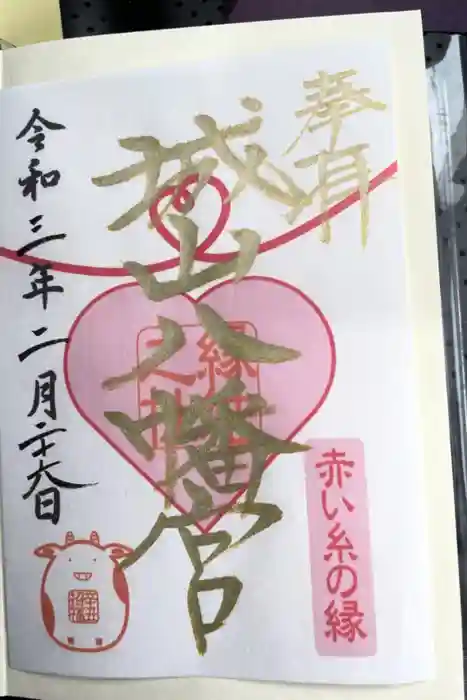 奉拝
城山八幡宮
赤い糸の縁
令和三年二月二十六日